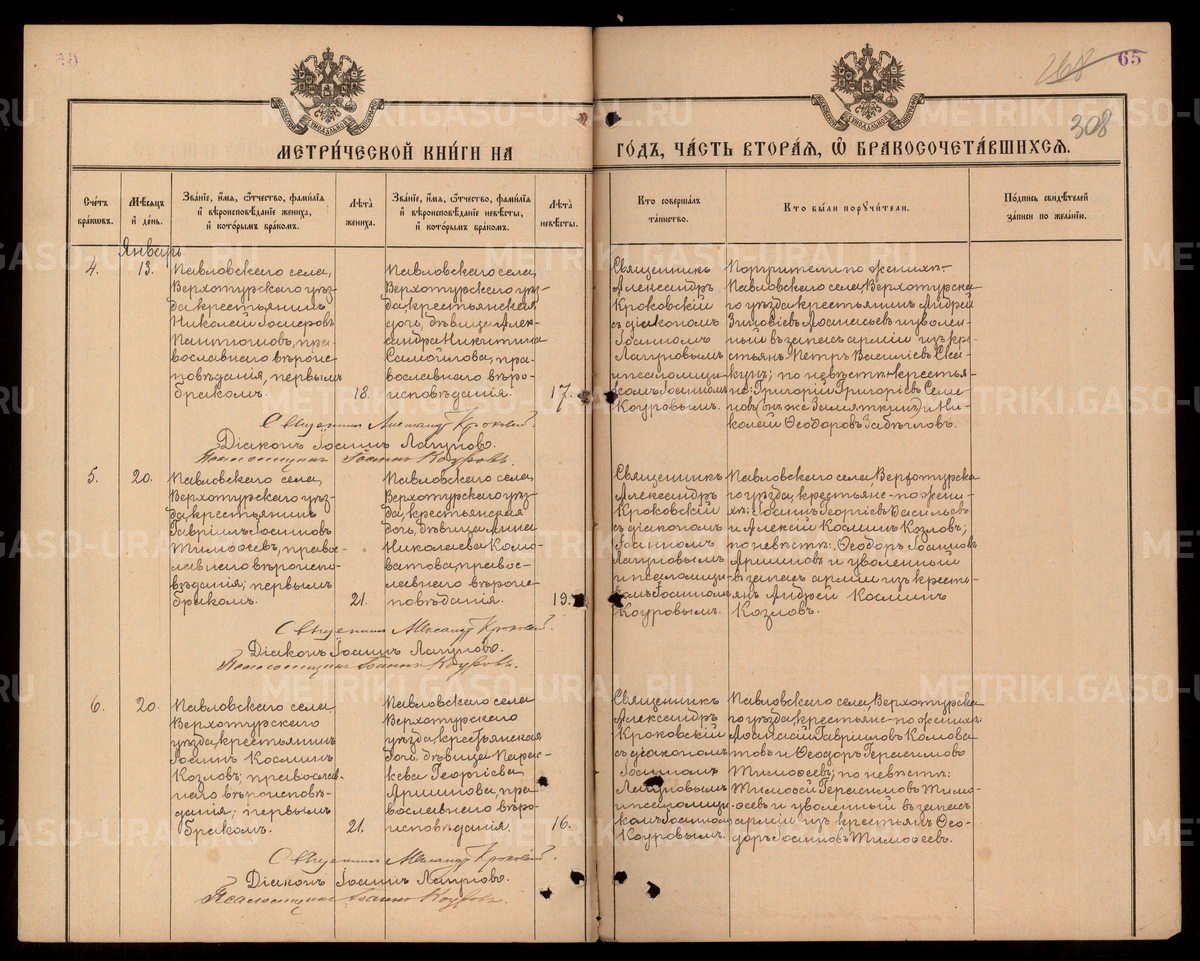 65
268
308
МЕТРИ́ЧЕСКОЙ КНИ́ГИ НА
ГО́ДЪ, ЧА́СТЬ ВТОРА́Я, Ѡ БРАКОСОЧЕТА́ВШИХСЯ.
Сче́тъ бра́кωвъ.
Мѣ́сяцъ и҆ де́нь.
Зва́нїе, и҆́мя, ѻ҆́тчество, фами́лїя и҆ вѣроисповѣ́данїе жениха̀, и҆ кото́рымъ бра́комъ.
Лѣ́та жениха̀.
Зва́нїе, и҆́мя, ѻ҆́тчество, фами́лїя и҆ вѣроисповѣ́данїе невѣ́сты, и҆ кото́рымъ бра́комъ.
Лѣ́та невѣ́сты.
Кто̀ соверша́лъ та́инство.
Кто̀ бы́ли порꙋчи́тели.
По́дпись свидѣ́телей за́писи по жела́нїю.
Январь
4.
13.
Павловскаго села,
Верхотурскаго уѣз-
да, крестьянинъ
Николай
Пантюховъ, пра-
вославнаго вѣроис-
повѣданія, первымъ
бракомъ.
18.
Павловскаго села,
Верхотурскаго уѣз-
да, крестьянская
дочь, дѣвица Алек-
сандра Никитина
Самойлова, пра-
вославнаго вѣро-
исповѣданія.
17.
Священникъ
Александръ
Кроковскій
съ діакономъ
Іоанномъ
Лагуновымъ
и псаломщи-
комъ Іоанномъ
Коуровымъ.
Поручители по женихѣ-
Павловскаго села, Верхотурска-
го уѣзда, крестьянинъ Андрей
Зиновіевъ Аѳанасьевъ и уволен-
ный въ запасъ арміи изъ кре-
стьянъ Петръ Василіевъ Ска-
кунъ; по невѣстѣ-крестья-
не: Григорій Григоріевъ Семе-
новъ (онъ же Замяткинъ) и Ни-
колай Ѳеодоровъ Забѣгловъ.
Священникъ Александръ Кроковскій.
Діаконъ Іоаннъ Лагуновъ.
Псаломщикъ Іоаннъ Коуровъ.
5.
20.
Павловскаго села,
Верхотурскаго уѣз-
да, крестьянинъ
Гавріилъ Іоанновъ
Тимоѳеевъ, правос-
лавнаго вѣроиспо-
вѣданія; первымъ
бракомъ.
21.
Павловскаго села,
Верхотурскаго уѣз-
да, крестьянская
дочь, дѣвица Анна
Николаева Колмо-
ватова, правос-
лавнаго вѣроис-
повѣданія.
19.
Священникъ
Александръ
Кроковскій
съ діакономъ
Іоанномъ
Лагуновымъ
и псаломщи-
комъ Іоанномъ
Коуровымъ.
Павловскаго села, Верхотурска-
го уѣзда, крестьяне-по жени-
хѣ: Іоаннъ Георгіевъ Васильевъ
и Алексій Косминъ Козловъ;
по невѣстѣ: Ѳеодоръ Іоанновъ
Аришновъ и уволенный
въ запасъ арміи изъ кресть-
янъ Андрей Косминъ
Козловъ.
Священникъ Александръ Кроковскій.
Діаконъ Іоаннъ Лагуновъ.
Псаломщикъ Іоаннъ Коуровъ.
6.
20.
Павловскаго села,
Верхотурскаго
уѣзда, крестьянинъ
Іоаннъ Косминъ
Козловъ, православ-
наго вѣроисповѣ-
данія; первымъ
бракомъ.
21.
Павловскаго села,
Верхотурскаго
уѣзда, крестьянская
дочь, дѣвица Парас-
кева Георгіева
Аришнова, пра-
вославнаго вѣро-
исповѣданія.
16.
Священникъ
Александръ
Кроковскій
съ діакономъ
Іоанномъ
Лагуновымъ
и псаломщи-
комъ Іоанномъ
Коуровымъ.
Павловскаго села, Верхотурска-
го уѣзда, крестьяне-по женихѣ:
Аѳанасій Гавріиловъ Колмова-
товъ и Ѳеодоръ Герасимовъ
Тимоѳеевъ; по невѣстѣ:
Тимоѳей Герасимовъ Тимо-
ѳеевъ и уволенный въ запасъ
арміи изъ крестьянъ Ѳео-
доръ Іоанновъ Тимоѳеевъ.
Священникъ Александръ Кроковскій.
Діаконъ Іоаннъ Лагуновъ.
Псаломщикъ Іоаннъ Коуровъ.
METRIKI.GASO-URAL.RU